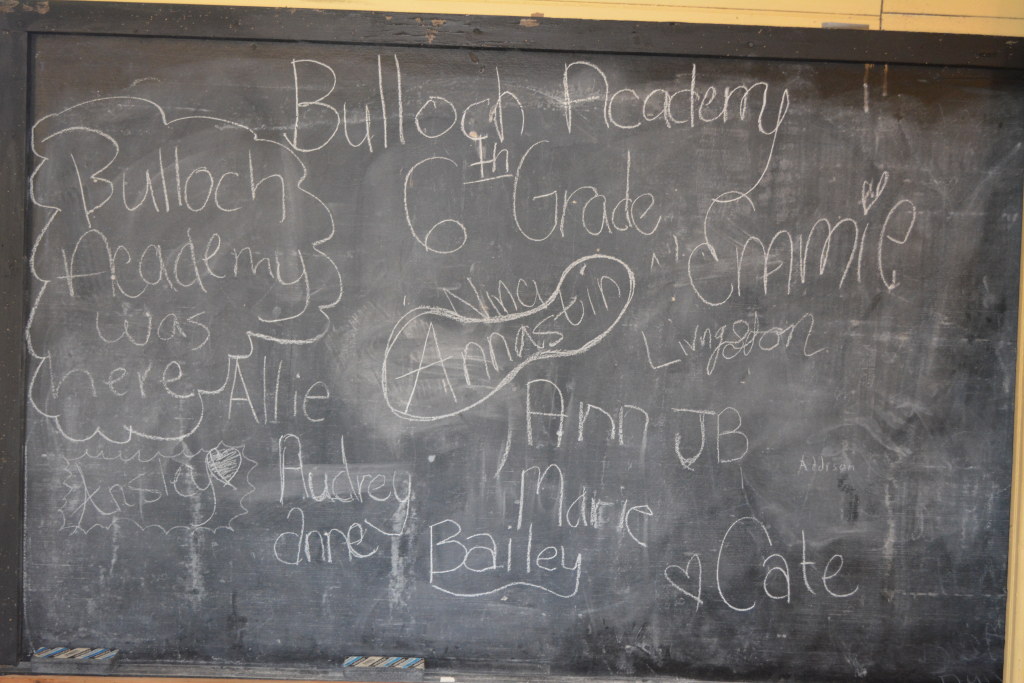 Bulloch Academy
6th Grade
Bulloch
Academy
was
here
Emmie
Nina
Annastin
Livingston
Allie
Ann
Marie
JB
Addison
Kinsley
Audrey
Anney
Bailey
Cate